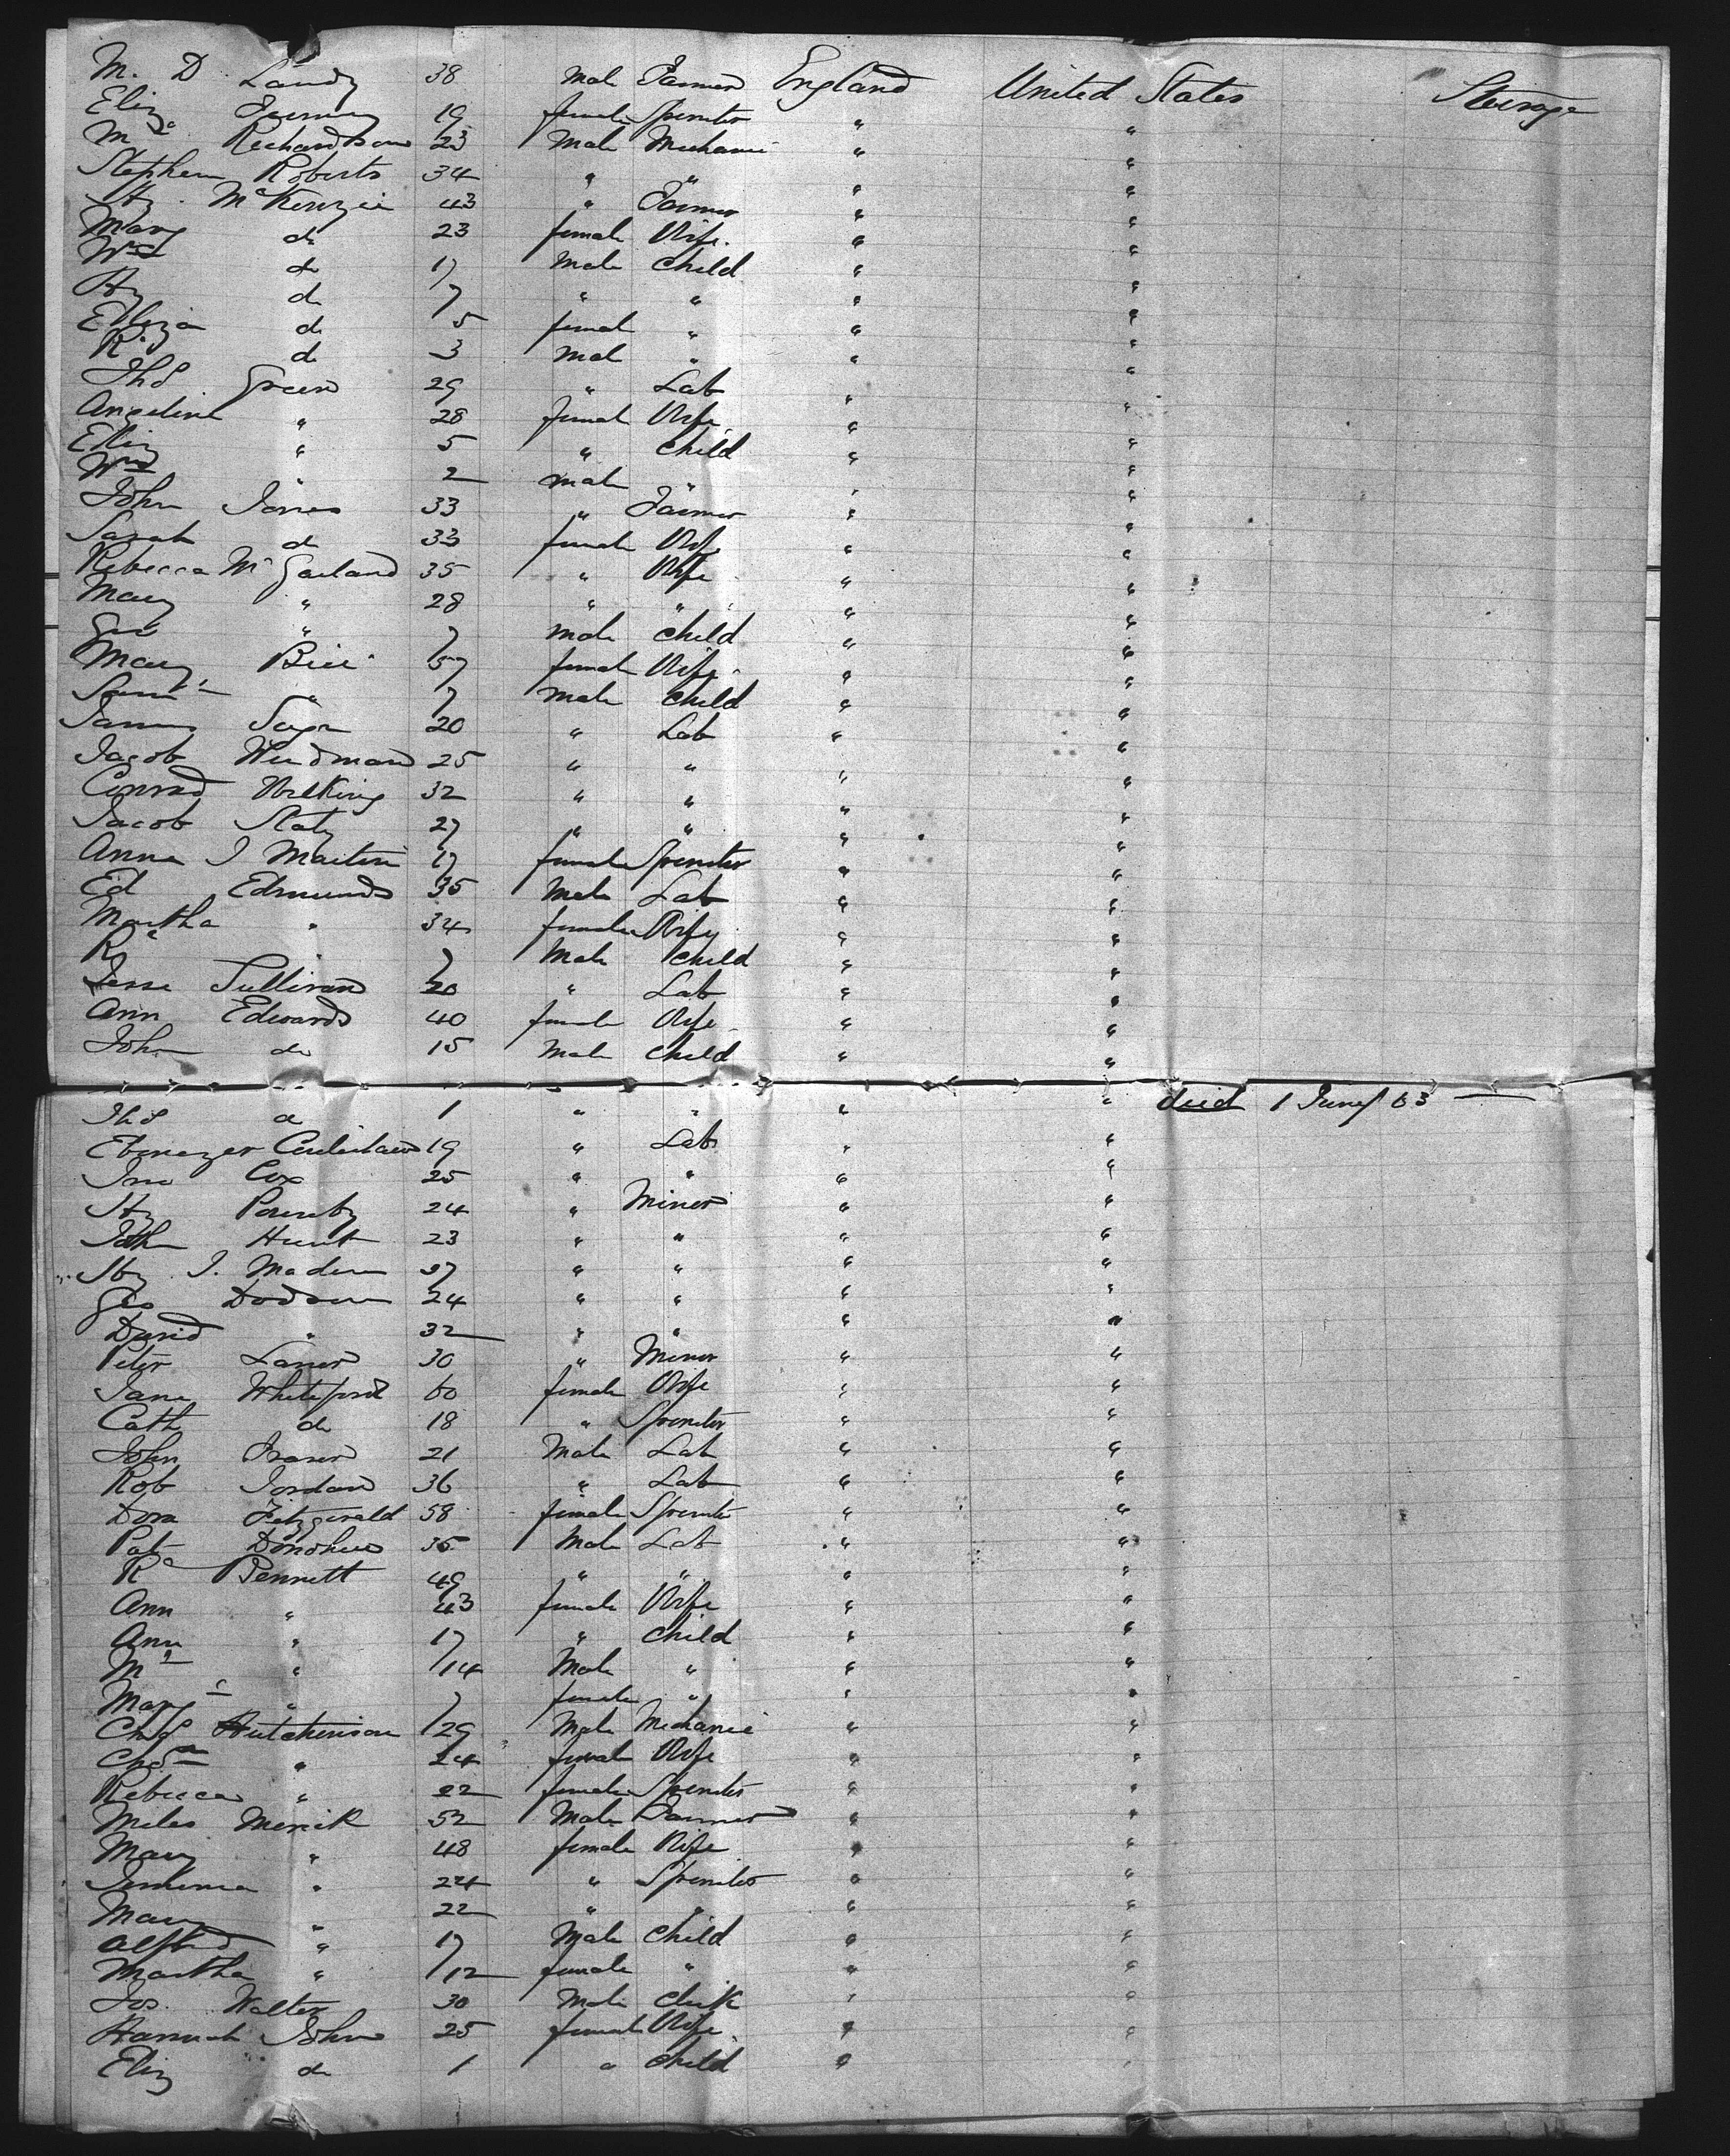 M. D. Landy 38 Male Farmer England United States Steerage
Eliz 19 female Spinster " "
M Richardson 23 Male Mechanic " "
Stephen Roberts 34 " " " "
Hy. McKenzie 43 " Farmer " "
Mary do 23 female Wife " "
Wm do 17 Male Child " "
Hy do 7 " " " "
Eliza do 5 female " " "
R. do 3 Mal " " "
Thos Green 29 " Lab " "
Angelina " 28 female Wife " "
Eliz " 5 " Child " "
Wm " 2 male " " "
John Jones 33 " Farmer " "
Sarah do 33 female Wife " "
Rebecca Mc Garland 35 " Wife " "
Mary " 28 " " " "
Geo " 7 male Child " "
Mary 57 female Wife " "
Saml " 7 male Child " "
James 20 " Lab " "
Jacob Weidman 25 " " " "
Conrad Wilking 32 " " " "
Jacob 27 " " " "
Anna J Martin 17 female Spinster " "
Ed Edmunds 35 Male Lab " "
Martha " 34 female Wife " "
R " 7 Male Child " "
Jesse Sullivan 20 " Lab " "
Ann Edwards 40 female Wife " "
John do 15 Male Child " "
Thos do 1 " " " " died 1 June/63
Ebenezer 19 " Lab " "
Jno Cox 25 " " " "
Hy 24 " Miner " "
John Hunt 23 " " " "
Hy J. Madern 27 " " " "
Geo Dodson 24 " " " "
David " 32 " " " "
Peter 30 " Miner " "
Jane Whiteford 60 female Wife " "
Cath do 18 " Spinster " "
John Fraser 21 Male Lab " "
Rob Jordan 36 " Lab " "
Dora Fitzgerald 58 female Spinster " "
Pat Donohue 35 Male Lab " "
Rd Bennett 49 " " " "
Ann " 43 female Wife " "
Ann " 17 " Child " "
" 14 Male " " "
Mary " 7 female " " "
Chas Hutchinson 29 Male Mechanic " "
" 24 female Wife " "
Rebecca " 22 female Spinster " "
Miles Merick 52 Male Farmer " "
Mary " 48 female Wife " "
Jemima " 24 " Spinster " "
Mary " 22 " " " "
Alfred " 17 Male Child " "
Martha " 12 female " " "
Jos. Walter 30 Male Clerk " "
Hannah John 25 female Wife " "
Eliz do 1 " Child " "